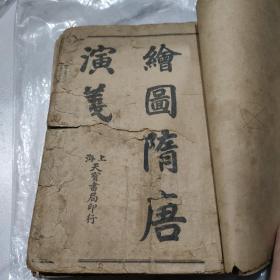 繪圖隋唐
演義
上海天寶書局印行